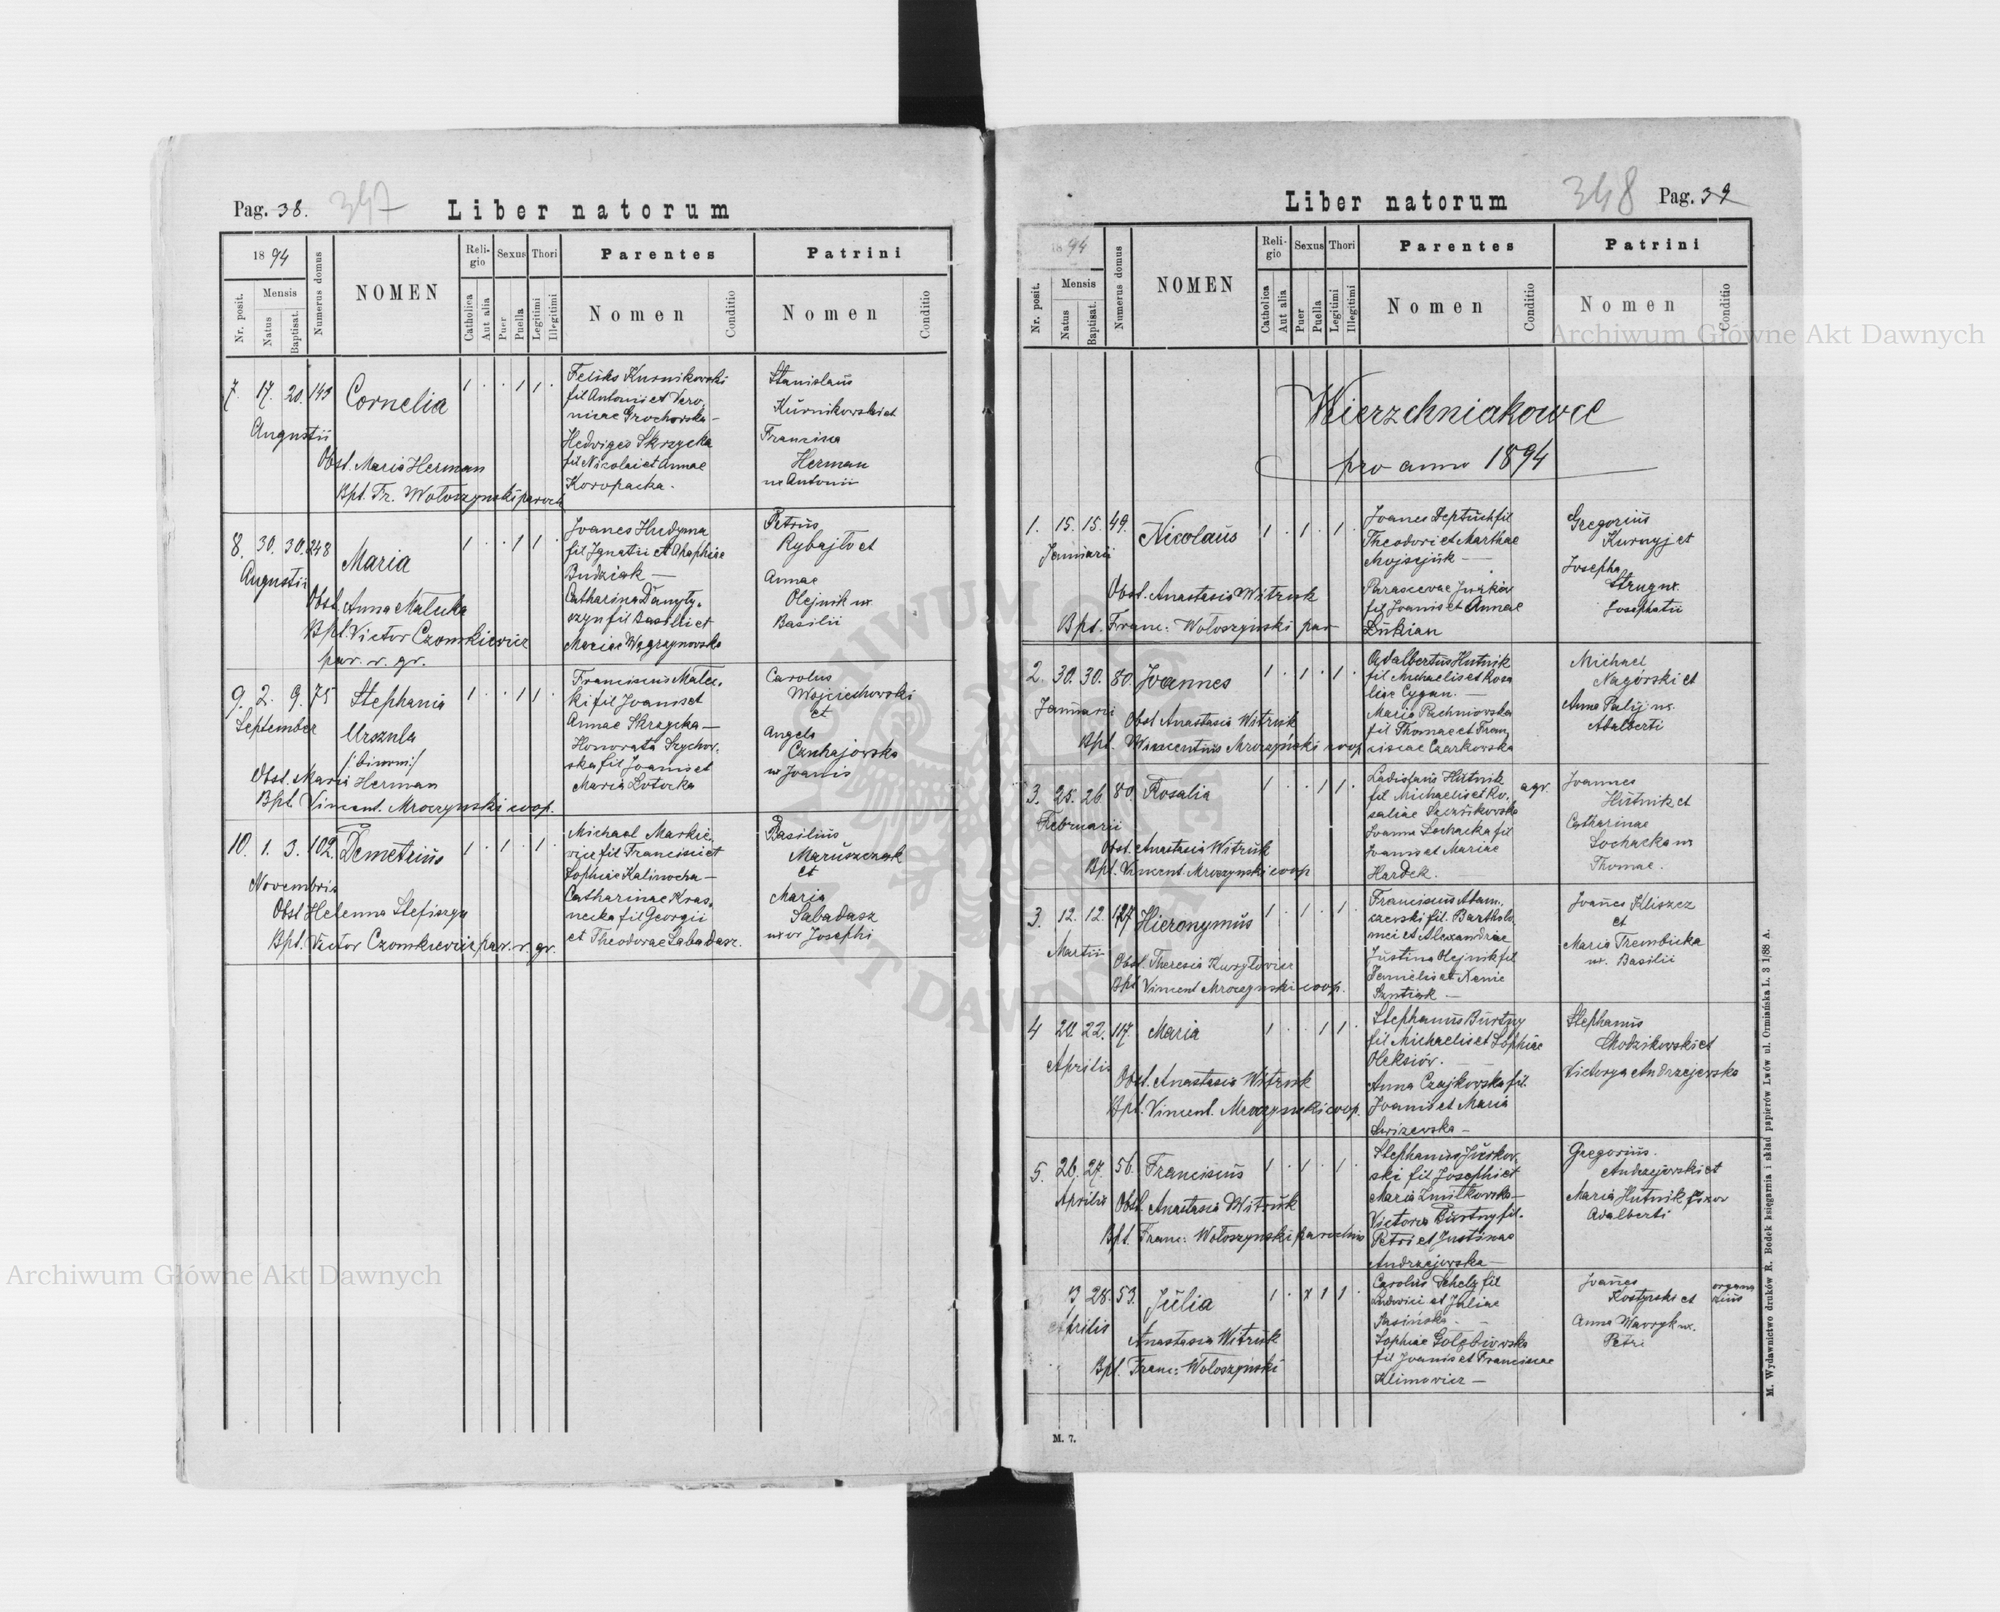 Pag. 38.
347
Liber natorum
1894
Nr. posit.
Mensis
Natus
Baptisat.
Numerus domus
NOMEN
Religio
Catholica
Aut alia
Sexus
Puer
Puella
Thori
Legitimi
Illegitimi
Parentes
Nomen
Conditio
Patrini
Nomen
Conditio
7. 17. 20. 143 Cornelia 1 . . 1 1 .
Augustii
Obst. Maria Herman
Bpt. Fr. Wołoszynski paroch
Feliks Kurnikowski
fil Antonii et Vero,
nicae Grochowska —
Hedviges Skrzycka
fil Nicolai et Annae
Koropacka.
Stanislaus
Kurnikowski et
Francisca
Herman
ux Antonii
8. 30. 30. 248 Maria 1 . . 1 1 .
Augustii
Obst. Anna Matuka
Bpt. Victor Czomkiewicz
par. r. gr.
Joanes Hudyma
fil Ignatii et Ahaphiae
Budziak —
Catharina Danyły,
czyn fil Basilii et
Mariae Węgrzynowska
Petrus
Rybajło et
Annae
Olejnik ux
Basilii
9. 2. 9. 75 Stephania 1 . . 1 1 .
September Urszula
/binomi/
Obst. Maria Herman
Bpt. Vincent. Mroczynski coop.
Franciscus Malec,
ki fil Joanis et
Annae Skrzycka —
Honorata Szychow,
ska fil Joanis et
Maria Lotocka
Carolus
Wojciechowski
et
Angela
Czuhajowska
ux Joanis
10. 1. 3. 102. Demetrius 1 . 1 . 1 .
Novembris
Obst Helenna Stefiszyn
Bpt. Victor Czomkiewicz par. r. gr.
Michael Markie,
wicz fil Francisci et
Sophiae Kalinocha —
Catharinae Kras,
necka fil Georgii
et Theodorae Sabadasz.
Basilius
Maruszczak
et
Maria
Sabadasz
uxor Josephi
Liber natorum
348
Pag. 39
1894
Nr. posit.
Mensis
Natus
Baptisat.
Numerus domus
NOMEN
Religio
Catholica
Aut alia
Sexus
Puer
Puella
Thori
Legitimi
Illegitimi
Parentes
Nomen
Conditio
Patrini
Nomen
Conditio
Wierzchniakowce
pro anno 1894
1. 15. 15. 49. Nicolaus 1 . 1 . 1
Januarii
Obst. Anastasia Witruk
Bpt. Franc: Wołoszynski par
Joanes Deptuch fil
Theodori et Marthae
Mojsejuk —
Parascevae Jurków
fil Joanis et Annae
Lukian
Gregorius
Kurnyj et
Josepha
Strug ux.
Josephatii
2. 30. 30. 80. Joannes 1 . 1 . 1 .
Januarii
Obst Anastasia Witruk
Bpt. Wincentius Mroczyński coop
Adalbertus Hutnik
fil Michaelis et Rosa
liae Cygan. —
Maria Pachniowska
fil Thomae et Fran,
ciscae Czarkowska
Michael
Nagórski et
Anna Palij ux.
Adalberti
3. 25. 26 80. Rosalia 1 . . 1 1 .
Februarii
Obst. Anastasia Witruk
Bpt. Vincent. Mroczynski coop
Ladislaus Hutnik agr.
fil Michaelis et Ro,
saliae Szczurkowska
Joanna Sochacka fil
Joanis et Mariae
Hardek. —
Joannes
Hutnik et
Catharinae
Sochacka ux
Thomae.
3. 12. 12. 127 Hieronymus 1 . 1 . 1 .
Martii
Obst. Theresia Kuryłowicz
Bpt Vincent Mroczynski coop.
Franciscus Adam,
czewski fil. Bartholo,
mei et Alexandriae
Justina Olejnik fil
Danielis et Xenie
Szutiak —
Joanes Kliszcz
et
Maria Trembicka
ux. Basilii
4 20. 22. 117. Maria 1 . . 1 1 .
Aprilis
Obst. Anastasia Witruk
Bpt. Vincent. Mroczynski coop.
Stephanus Burtny
fil Michaelis et Sophiae
Oleksiów. —
Anna Czajkowska fil.
Joanis et Maria
Stephanus
Chodzikowski et
Victorya Andrzejewska
5. 26. 27. 56. Franciscus 1 . 1 . 1 .
Aprilis Obst. Anastasia Witruk
Bpt. Franc: Wołoszynski parochus
Stephanus Jurkow,
ski fil Josephi et
Maria Zmitkowska —
Victoria Burtny fil.
Petri et Justinae
Andrzejewska —
Gregorius.
Andrzejewski et
Maria Hutnik uxor
Adalberti
3 28. 53. Julia 1 . x 1 1 .
Aprilis
Anastasia Witruk
Bpt. Franc: Wołoszynski
Carolus Schelz fil
Ludovici et Juliae
Pasińska. —
Sophiae Gołębiowska
fil Joanis et Franciscae
Klimowicz —
Joanes organa
Kostyrski et rius
Anna Wawryk ux.
Petri
M. 7.
M. Wydawnictwo druków R. Bodek księgarnia i skład papierów Lwów ul. Ormiańska L. 3 1/88 A.
Archiwum Główne Akt Dawnych
Archiwum Główne Akt Dawnych